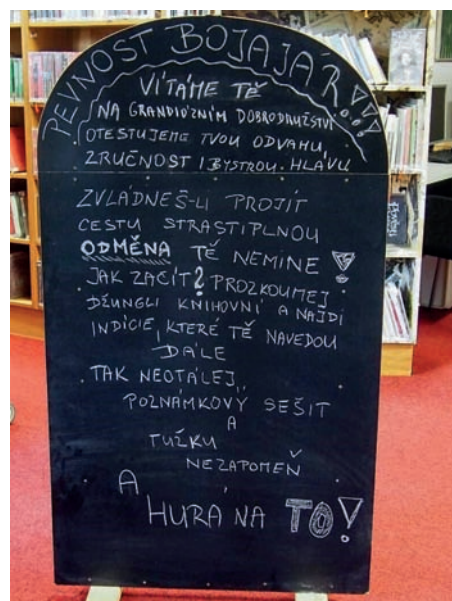 PEVNOST BOJAJAR!!!
VÍTÁME TĚ
NA GRANDIÓZNÍM DOBRODRUŽSTVÍ
OTESTUJEME TVOU ODVAHU,
ZRUČNOST I BYSTROU HLAVU
ZVLÁDNEŠ-LI PROJÍT
CESTU STRASTIPLNOU
ODMĚNA TĚ NEMINE!
JAK ZAČÍT? PROZKOUMEJ
DŽUNGLI KNIHOVNÍ A NAJDI
INDICIE, KTERÉ TĚ NAVEDOU
DÁLE
TAK NEOTÁLEJ,
POZNÁMKOVÝ SEŠIT
A
TUŽKU
NEZAPOMEŇ
A
HURÁ NA TO!